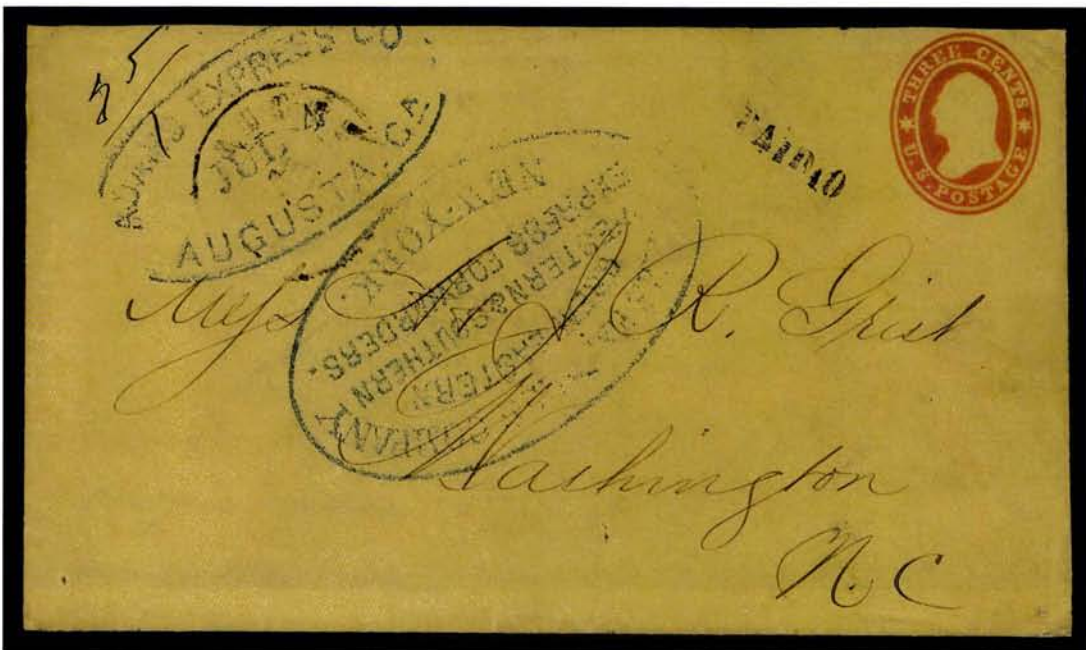 25/1
ADAMS EXPRESS CO
JUL
AUGUSTA. GA
PAID 10
THREE CENTS
U.S. POSTAGE
NEW-YORK.
EXPRESS FORWARDERS.
WESTERN & SOUTHERN
EASTERN
COMPANY
J. R. Grist
Washington
N. C